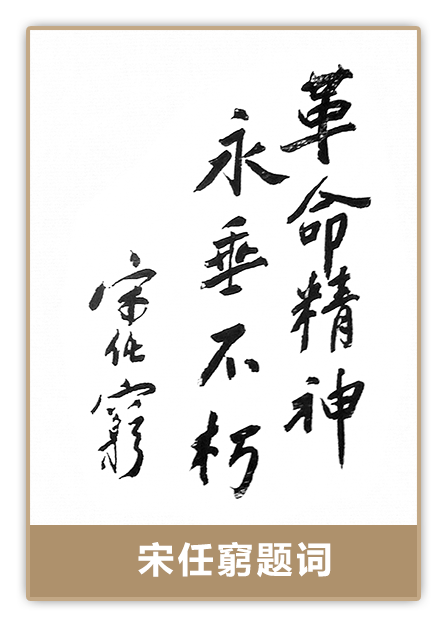 革命精神
永垂不朽
宋任窮
宋任窮题词